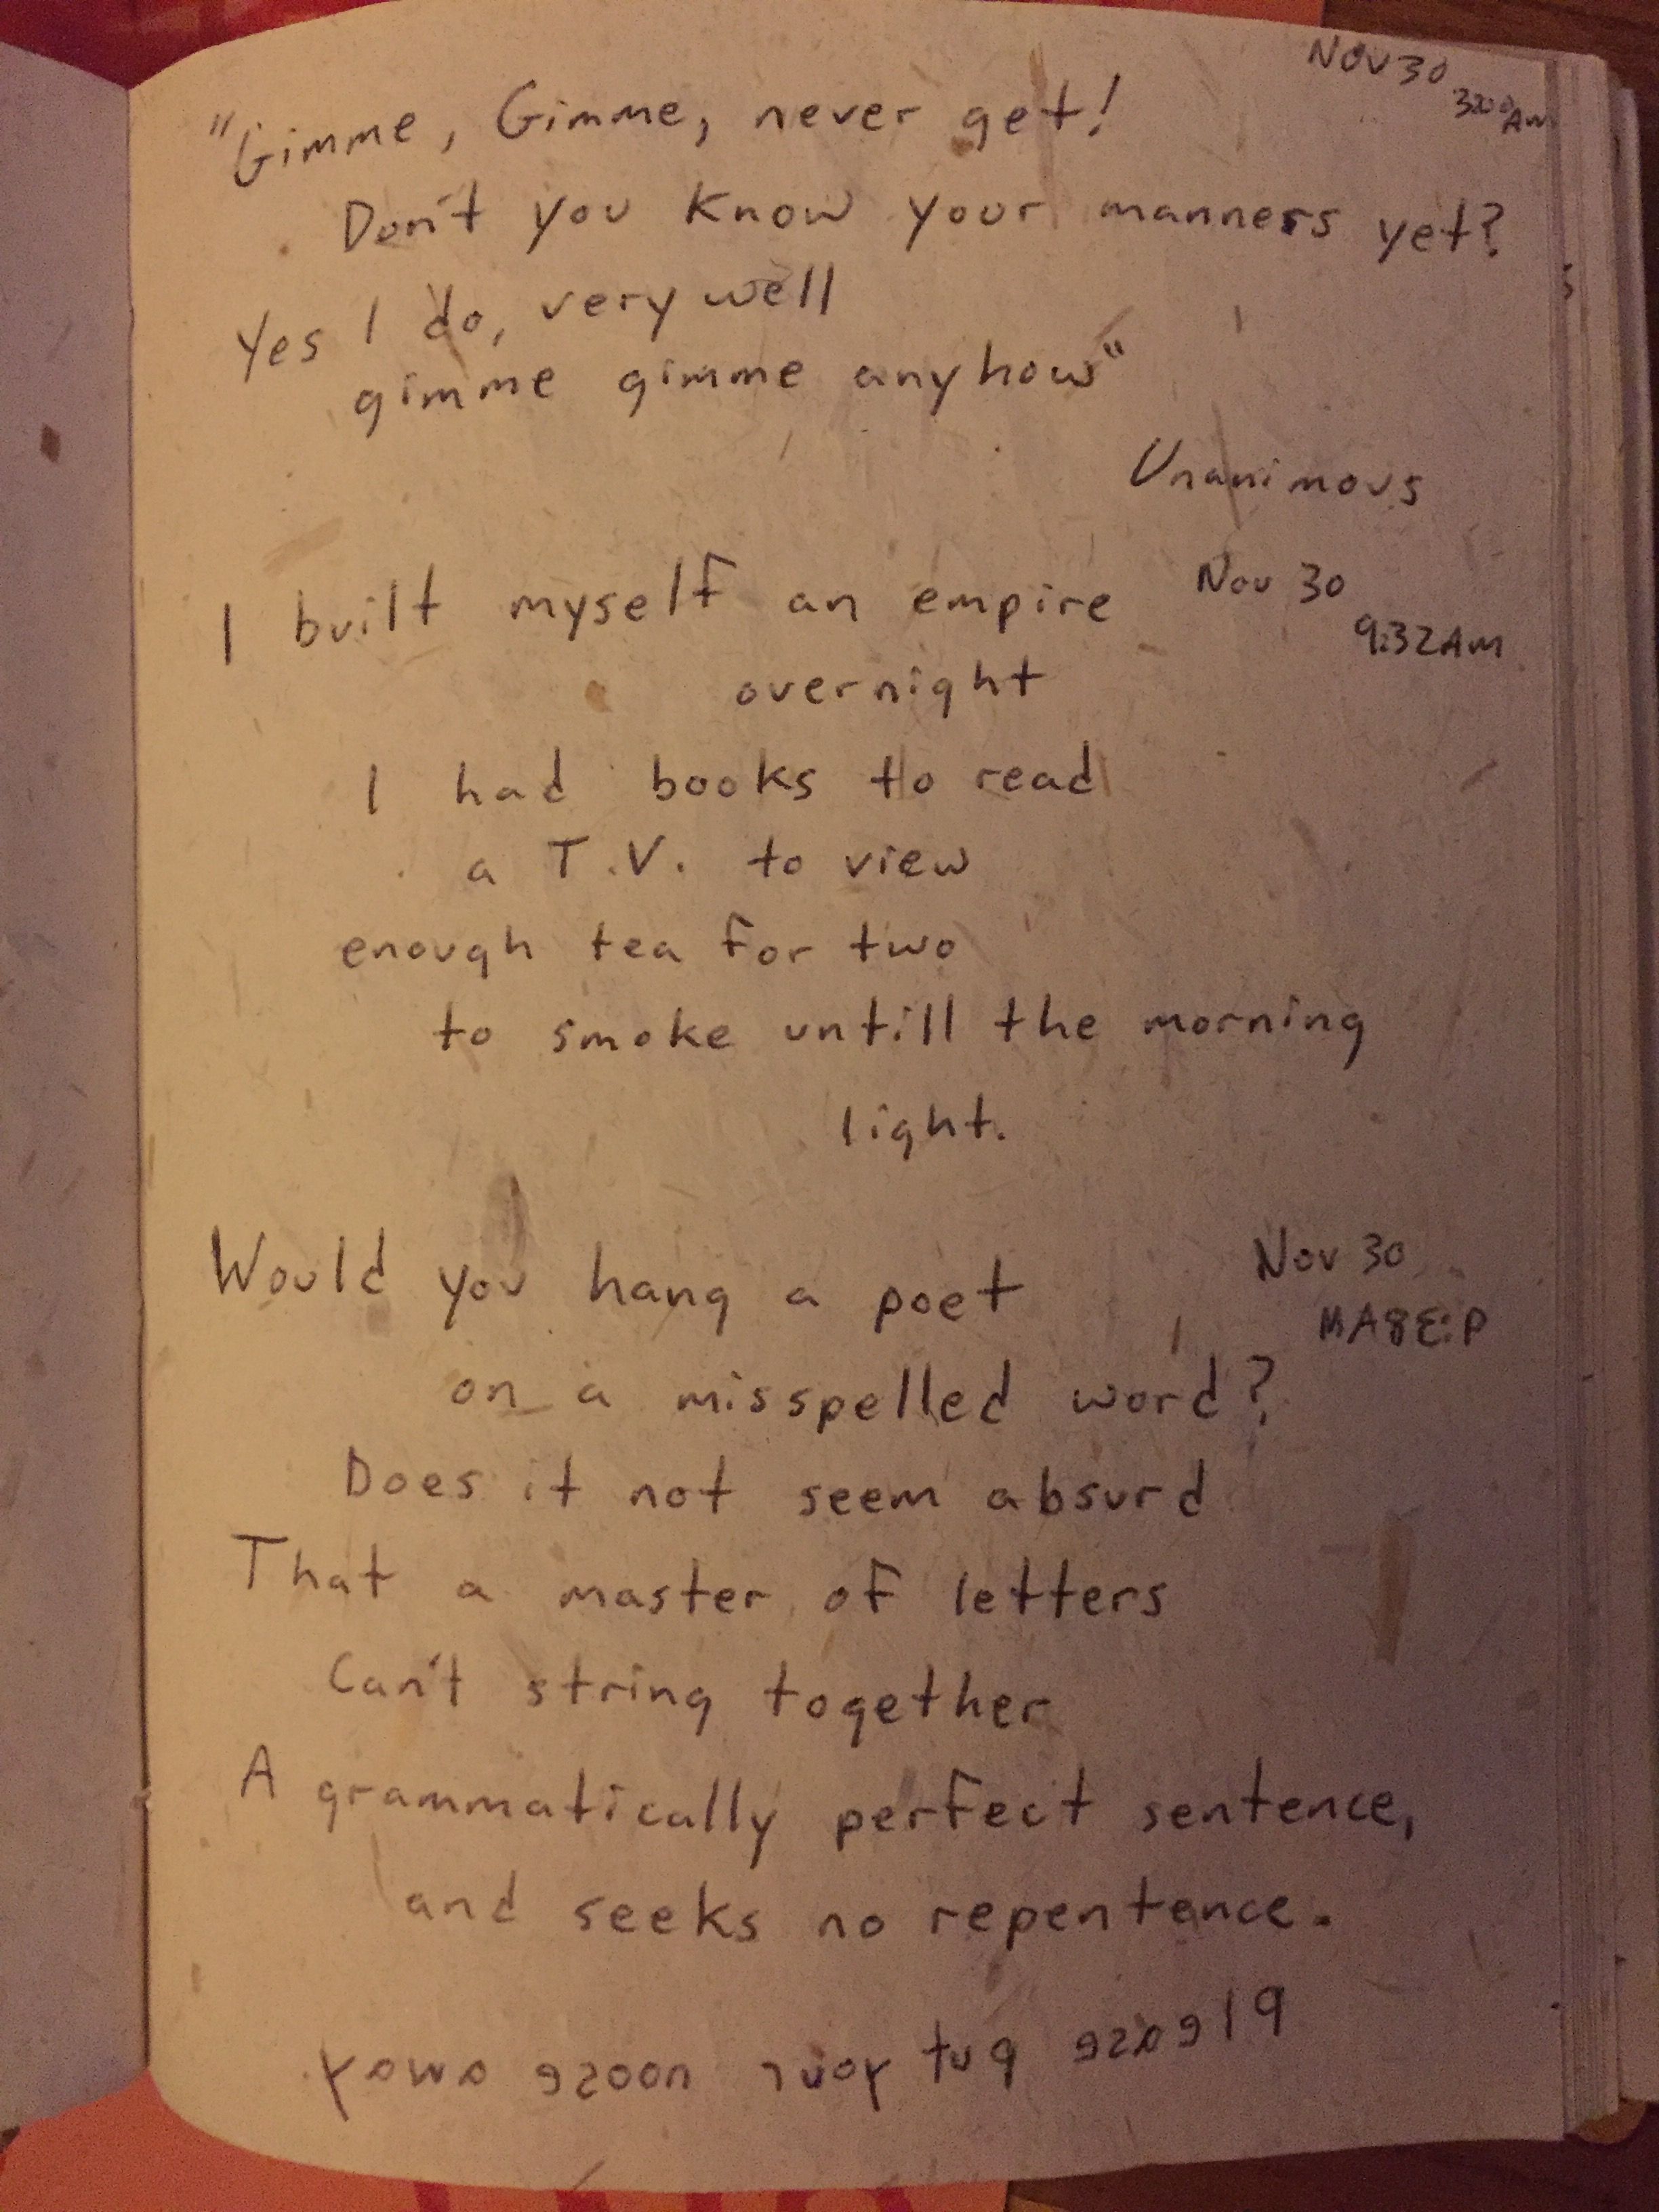 Nov 30
3:00 AM
"Gimme, Gimme, never get!
Don't you know your manners yet?
Yes I do, very well
gimme gimme anyhow"
Unanimous
I built myself an empire
Nov 30
9:32AM
overnight
I had books to read
a T.V. to view
enough tea for two
to smoke untill the morning
light.
Would you hang a poet
Nov 30
9:38AM
on a misspelled word?
Does it not seem absurd
That a master of letters
Can't string together
A grammatically perfect sentence,
and seeks no repentence.
please put your noose away